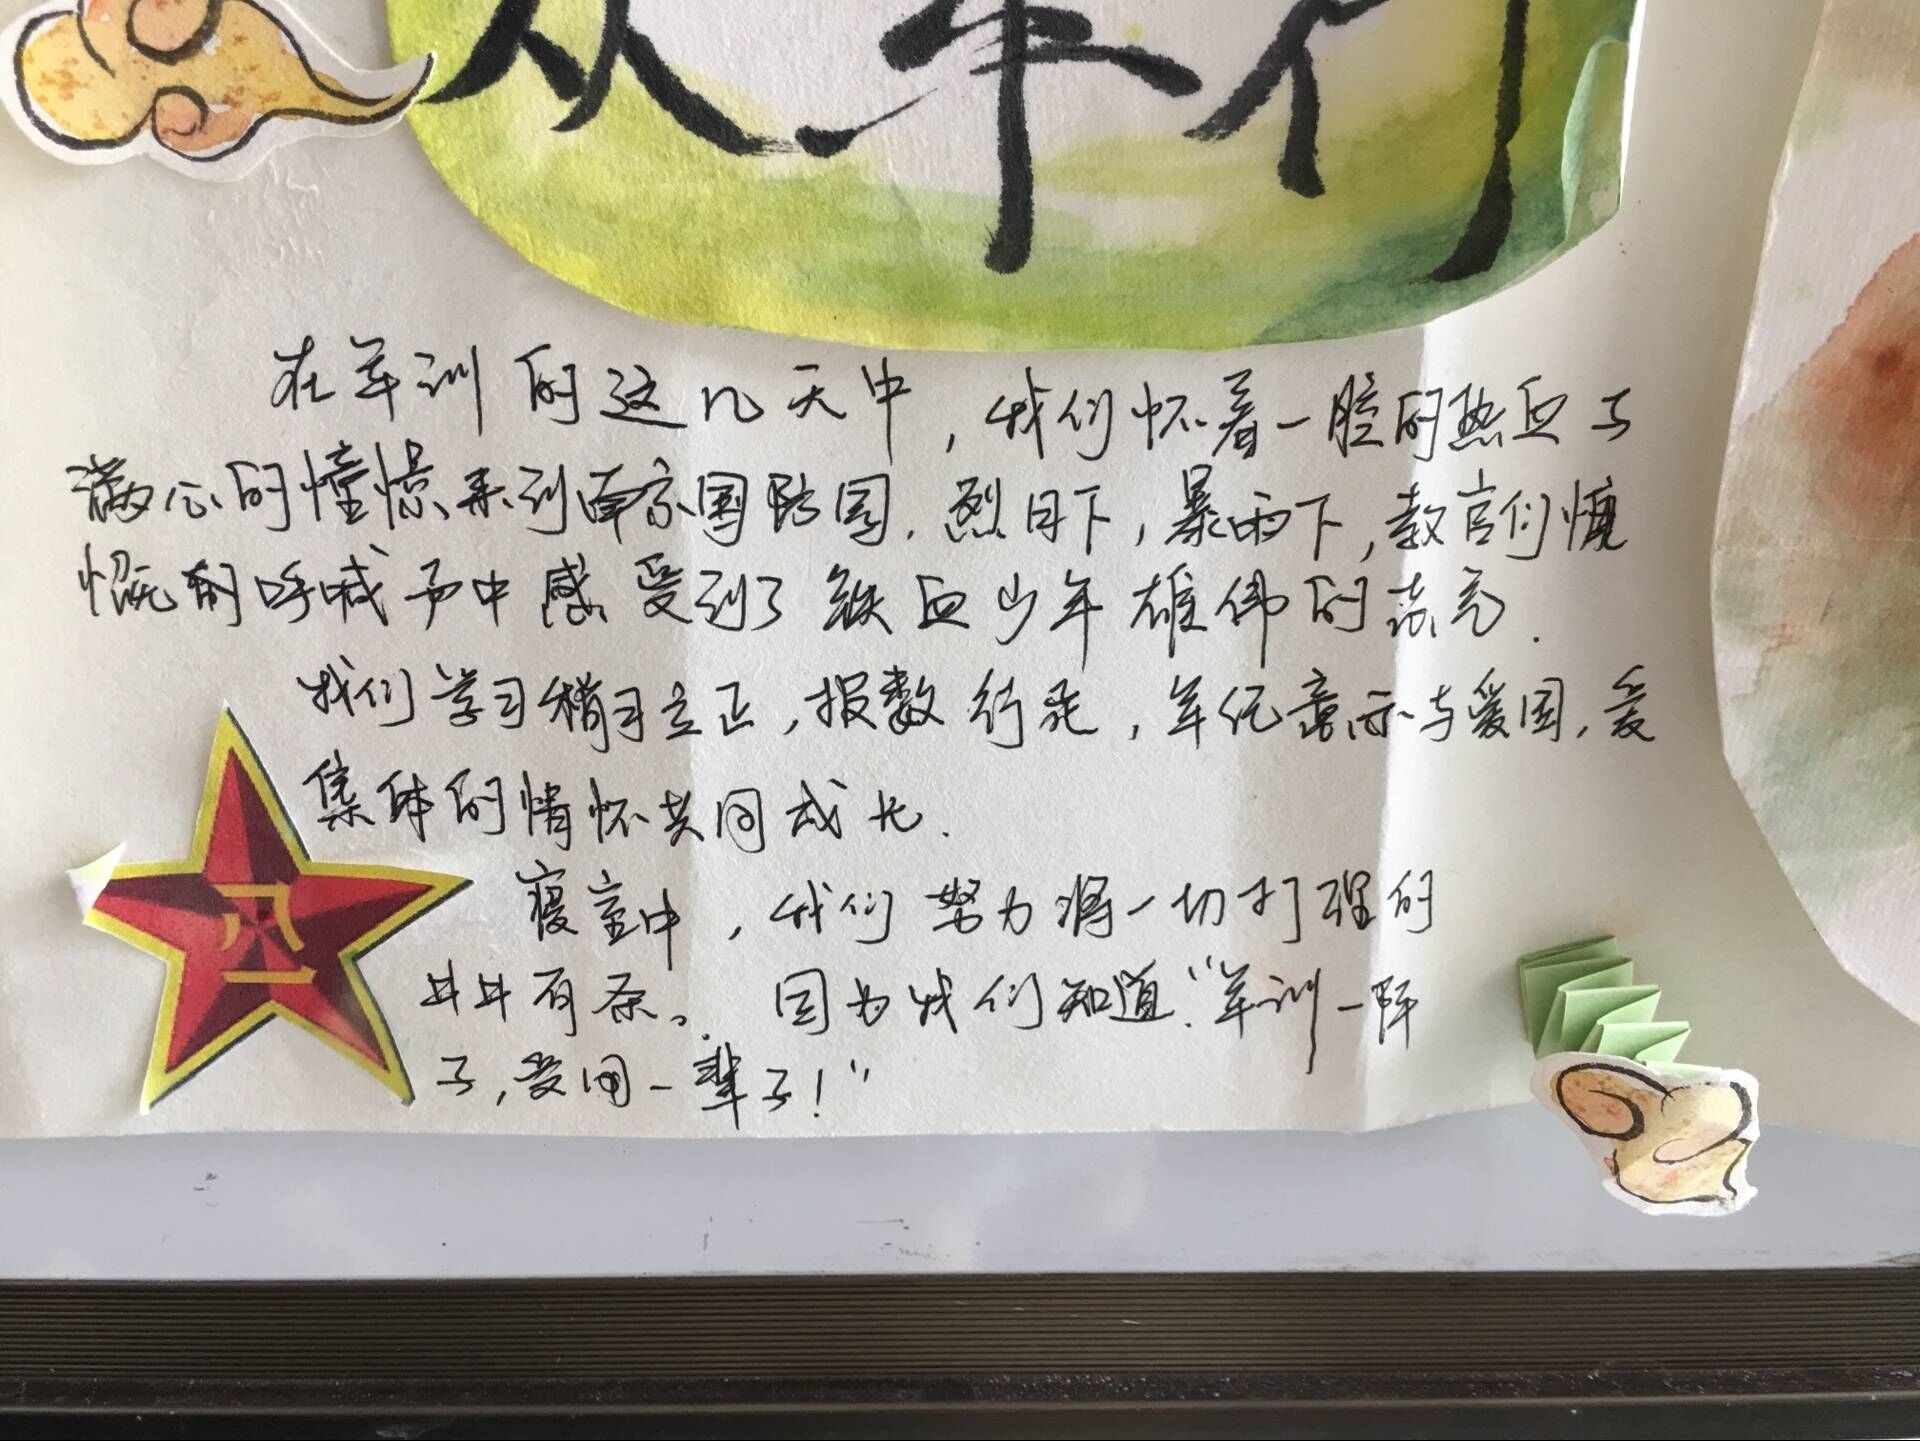 从军行
在军训的这几天中，我们怀着一腔的热血与
满心的憧憬来到南京国防园.烈日下，暴雨下，教官们慷
慨的呼喊声中感受到了铁血少年雄伟的志气.
我们学习稍习立正，报数行礼，军纪意示与爱国，爱
集体的情怀共同成长.
八一
寝室中，我们努力将一切打理的
井井有条。因为我们知道：“军训一阵
子，爱国一辈子！”